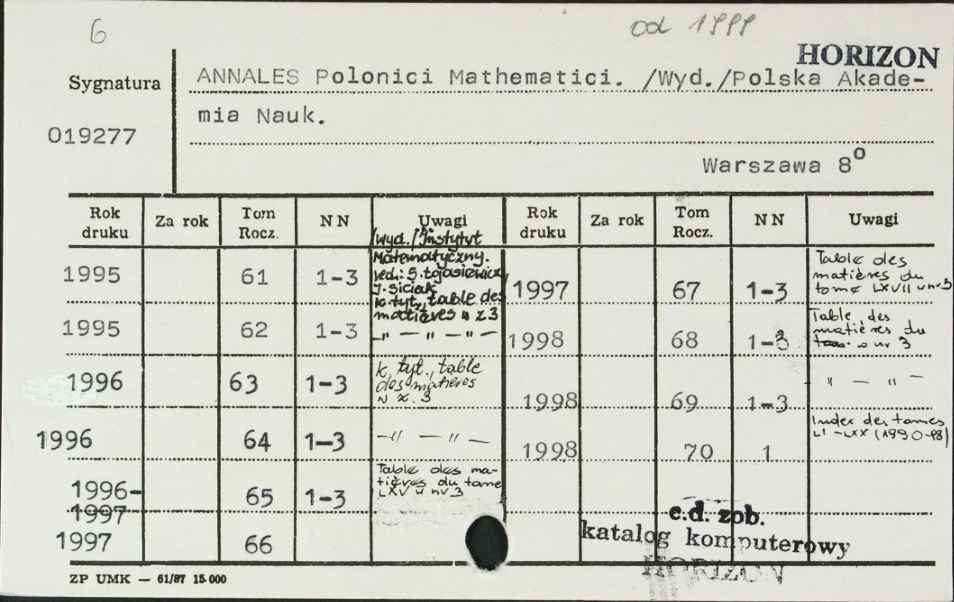 6
od 1999
HORIZON
Sygnatura
019277
ANNALES Polonici Mathematici. /Wyd./Polska Akade-
mia Nauk.
Warszawa 8°
Rok druku | Za rok | Tom Rocz. | N N | Uwagi | Rok druku | Za rok | Tom Rocz. | N N | Uwagi
/Wyd./ Instytut
Matematyczny.
red.: S. Łojasiewicz,
J. Siciak
k. tyt., table des
matières w z 3
1995 61 1-3
1995 62 1-3 -"- -"-
1996 63 1-3 k. tyt., table
des matières
w z. 3
1996 64 1-3 -"- -"-
1996-
1997 65 1-3 Table des ma-
tières du tome
LXV w nr 3
1997 66
1997 67 1-3 Table des
matières du
tome LXVII w nr 3
1998 68 1-3 Table des
matières du
tom. w nr 3
1998 69 1-3 -"- -"-
1998 70 1 Index des tomes
LI-LXX (1990-98)
c.d. zob.
katalog komputerowy
HORIZON
ZP UMK — 61/87 15.000